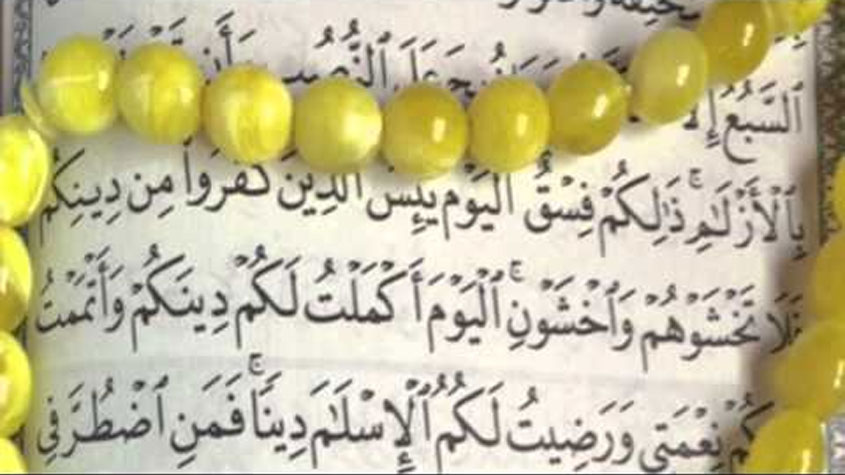 ٱلسَّبُعُ إِلَّا
بِٱلْأَزْلَٰمِ ۚ ذَٰلِكُمْ فِسْقٌ ۗ ٱلْيَوْمَ يَئِسَ ٱلَّذِينَ كَفَرُوا۟ مِن دِينِكُمْ
فَلَا تَخْشَوْهُمْ وَٱخْشَوْنِ ۚ ٱلْيَوْمَ أَكْمَلْتُ لَكُمْ دِينَكُمْ وَأَتْمَمْتُ
كُمْ نِعْمَتِى وَرَضِيتُ لَكُمُ ٱلْإِسْلَٰمَ دِينًا ۚ فَمَنِ ٱضْطُرَّ فِى